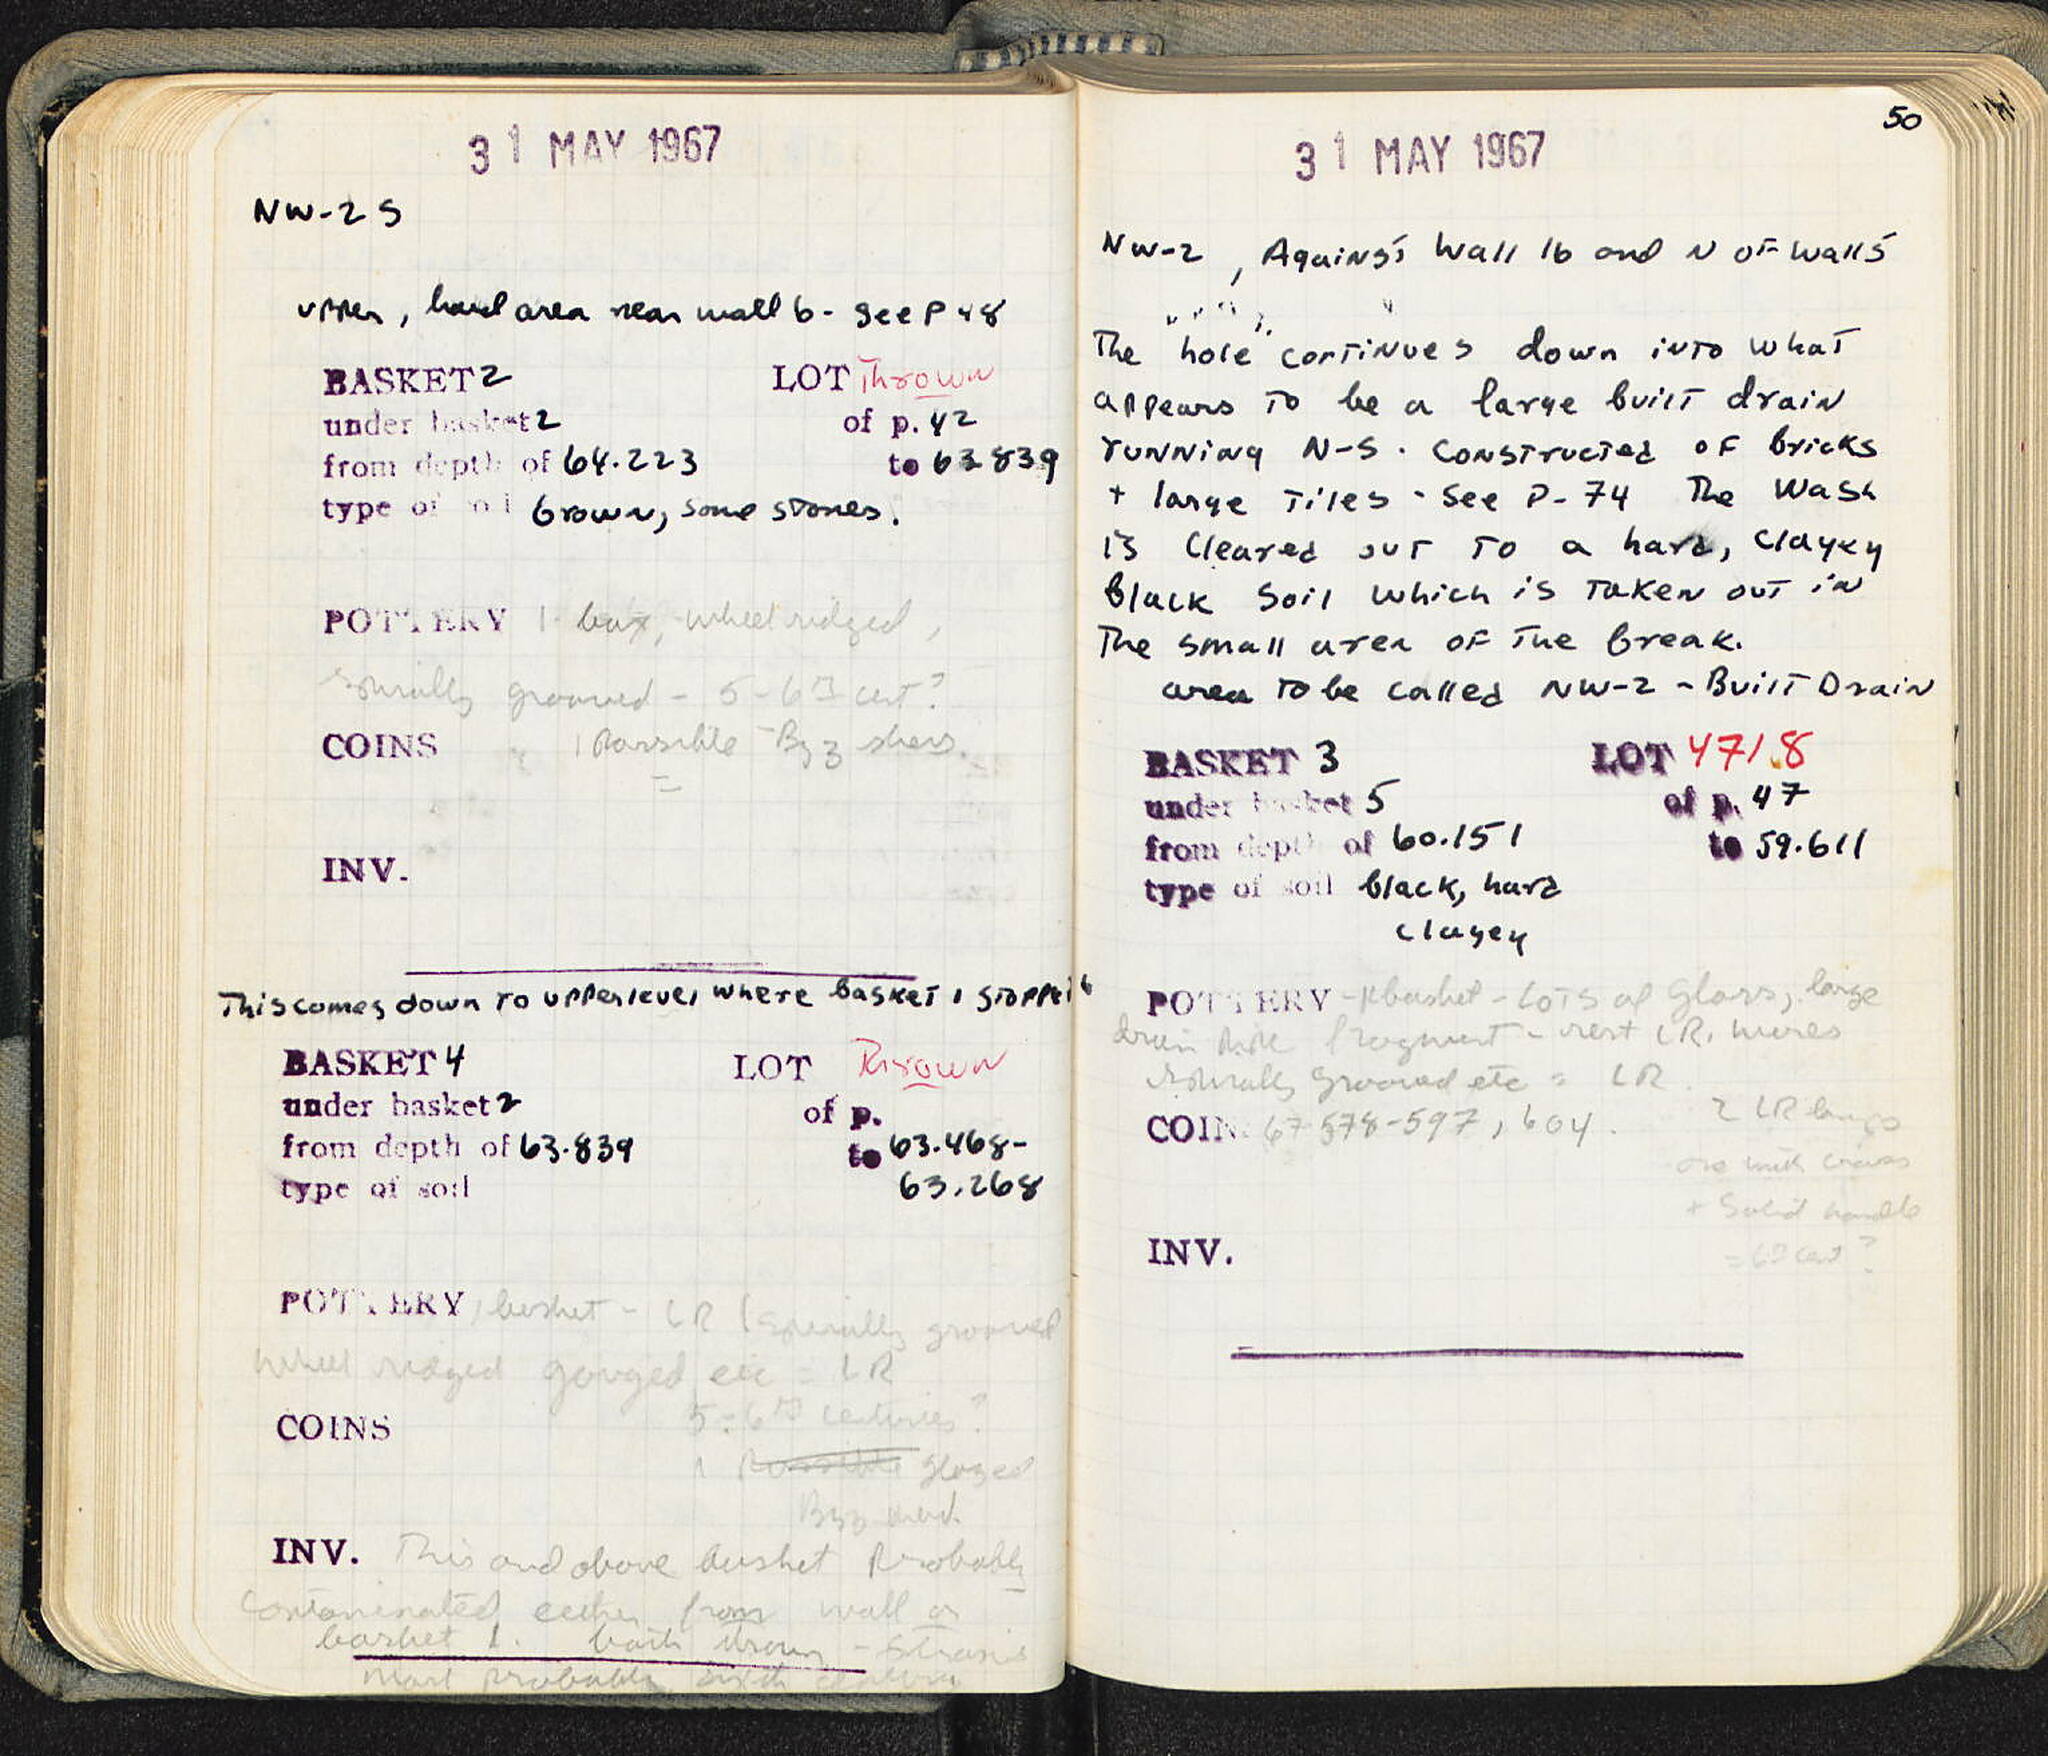 31 MAY 1967
NW-2 S
upper, hard area near wall 6 - See P 48
BASKET 2 LOT Thrown
under basket 2 of p. 42
from depth of 64.223 to 63.839
type of soil brown, some stones.
POTTERY 1 box, wheel ridged,
spirally grooved - 5-6th cent?
COINS 1 possible Byz sherd.
INV.
This comes down to upper level where basket 1 stopped
BASKET 4 LOT Thrown
under basket 2 of p.
from depth of 63.839 to 63.468-
type of soil 63.268
POTTERY 1 basket - LR (spirally grooved
wheel ridged gouged etc = LR
5-6th centuries?
COINS
1 possible glazed
Byz sherd
INV. This and above basket probably
contaminated either from wall or
basket 1. both thrown -
most probably sixth century
50
31 MAY 1967
NW-2, Against Wall 16 and N of Wall 5
The "hole" continues down into what
appears to be a large built drain
running N-S. Constructed of bricks
+ large tiles - See P-74 The Wash
is cleared out to a hard, clayey
black soil which is taken out in
The small area of the break.
area to be called NW-2 - Built Drain
BASKET 3 LOT 4718
under basket 5 of p. 47
from depth of 60.151 to 59.611
type of soil black, hard
clayey
POTTERY - basket - Lots of Glass, large
drain pipe fragment - rest LR. wares
spirally grooved etc = LR.
COIN. 67-578-597, 604. 2 LR lamps
one with cross
+ Solid handle
= 6th cent?
INV.